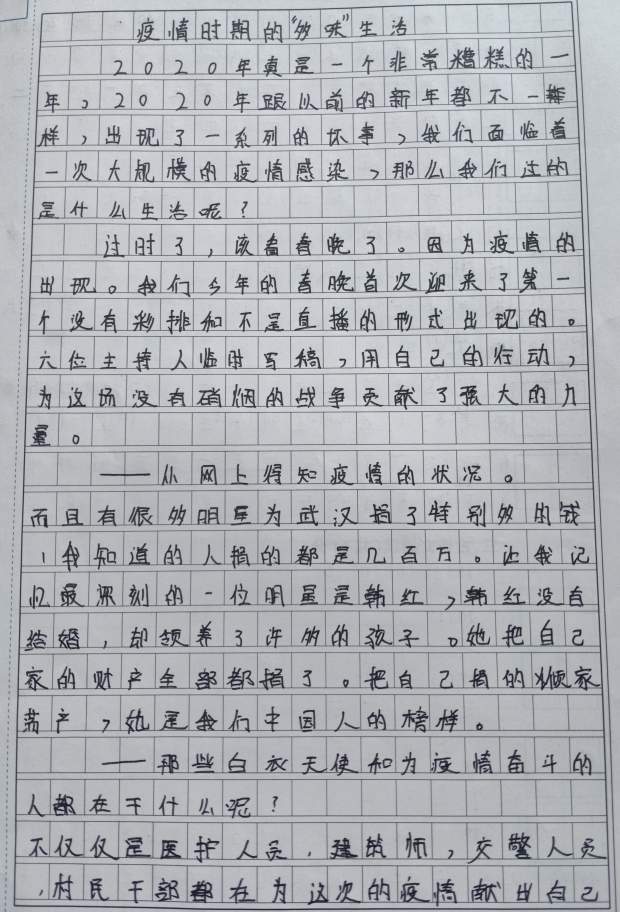 疫情时期的“多味”生活
2020年真是一个非常糟糕的一
年，2020年跟以前的新年都不一
样，出现了一系列的坏事，我们面临着
一次大规模的疫情感染，那么我们过的
是什么生活呢？
过时了，该看春晚了。因为疫情的
出现。我们今年的春晚首次迎来了第一
个没有彩排和不是直播的形式出现的。
六位主持人临时写稿，用自己的行动，
为这场没有硝烟的战争贡献了强大的力
量。
——从网上得知疫情的状况。
而且有很多明星为武汉捐了特别多的钱
，我知道的人捐的都是几百万。让我记
忆最深刻的一位明星是韩红，韩红没有
结婚，却领养了许多的孩子。她把自己
家的财产全部都捐了。把自己捐的倾家
荡产，她是我们中国人的榜样。
——那些白衣天使和为疫情奋斗的
人都在干什么呢？
不仅仅是医护人员，建筑师，交警人员
，村民干部都在为这次的疫情献出自己